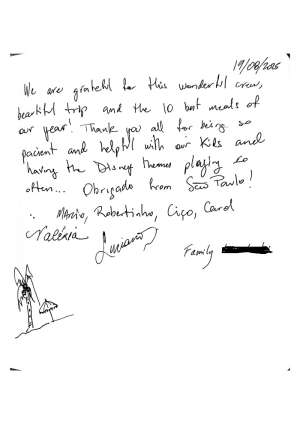 19/08/2025
We are grateful for this wonderful crew,
beautiful trip and the 10 best meals of
our year! Thank you all for being so
pacient and helpful with our kids and
having the Disney themes playing so
often... Obrigado from São Paulo!
Mario, Robertinho, Ciço, Carol
Valéria Luciano
Family